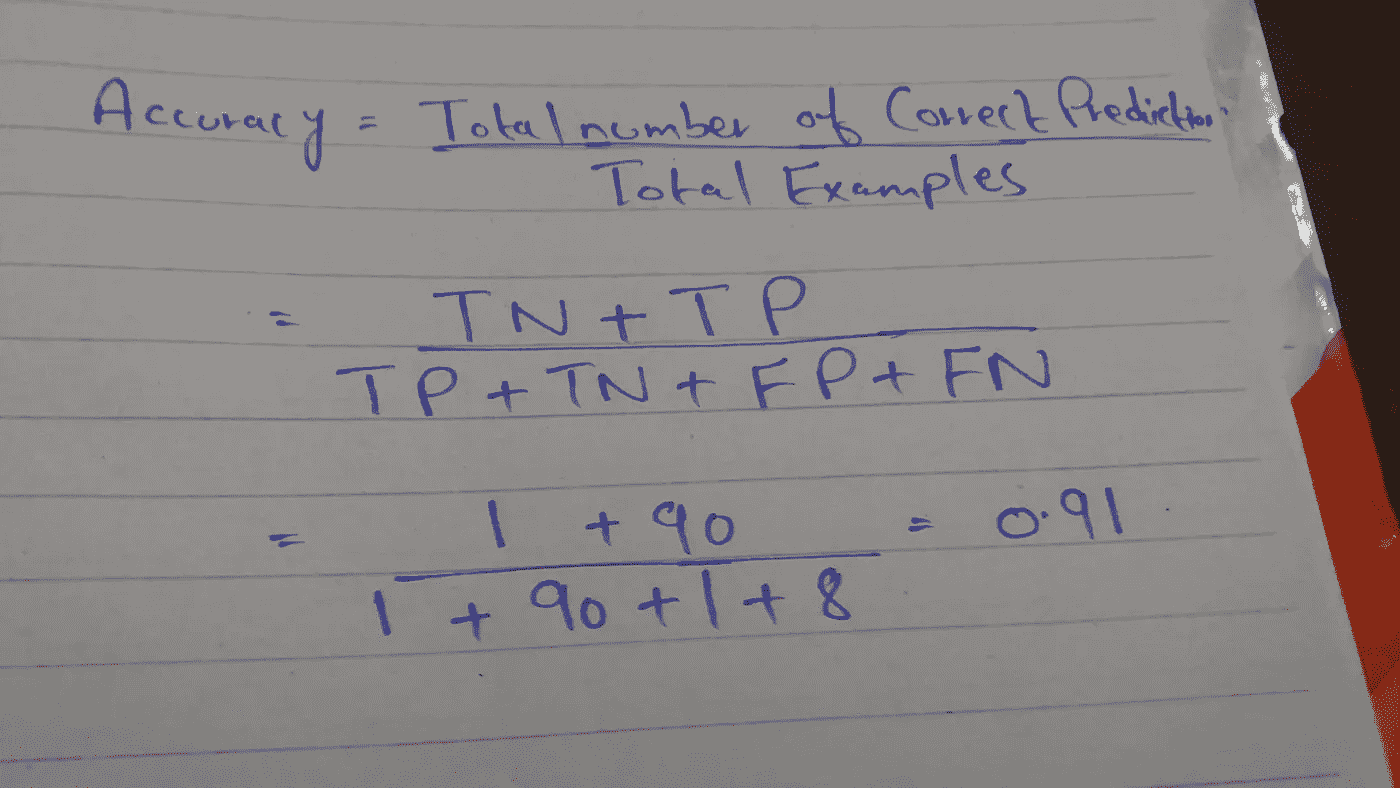 Accuracy = Total number of Correct Prediction
Total Examples
= TN + TP
TP + TN + FP + FN
= 1 + 90 = 0.91
1 + 90 + 1 + 8